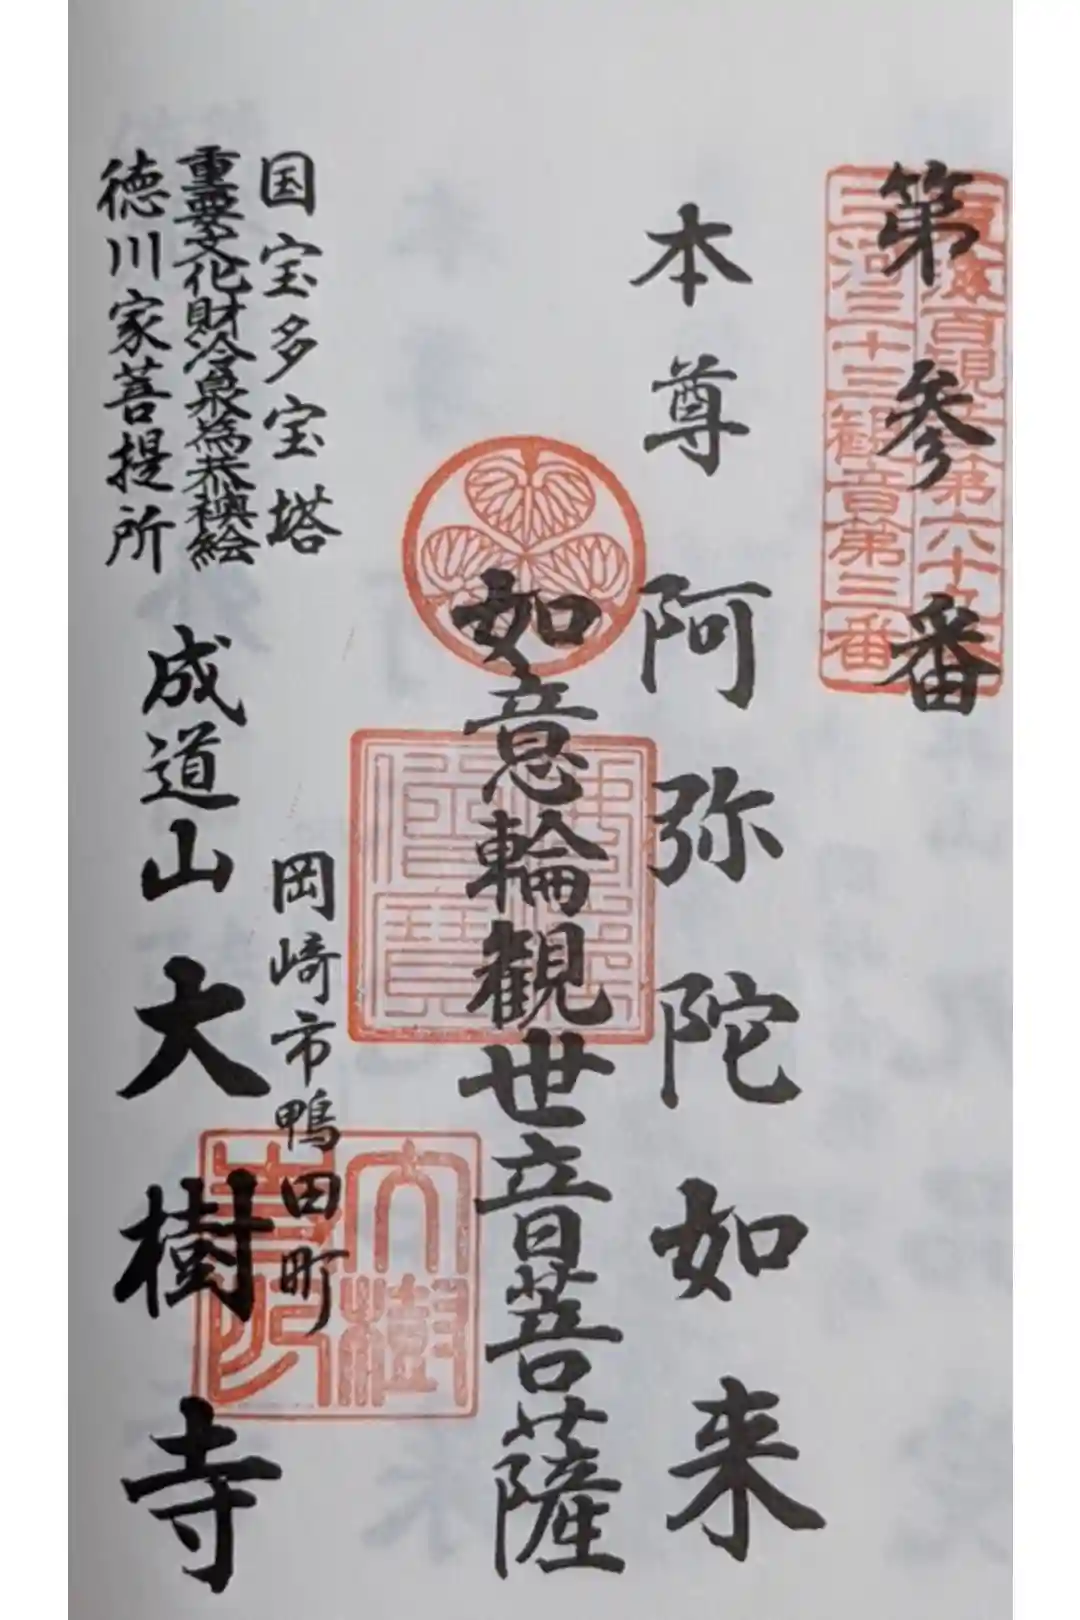 第参番
三河三十三観音第三番
本尊 阿弥陀如来
如意輪観世音菩薩
国宝多宝塔
重要文化財冷泉為恭襖絵
徳川家菩提所
岡崎市鴨田町
成道山 大樹寺